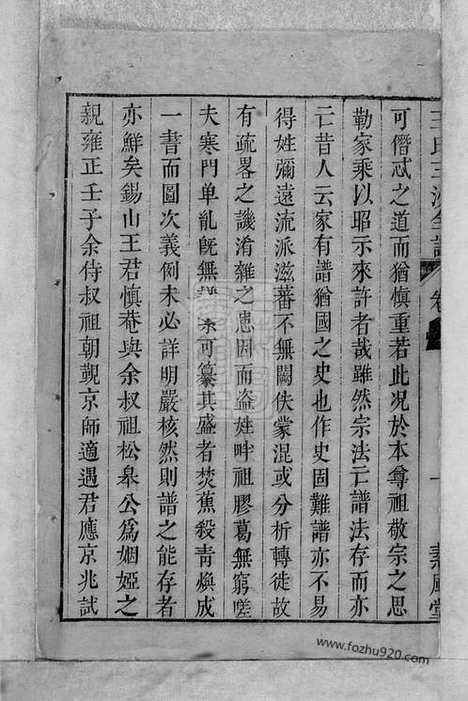 王氏三沙全譜 卷 一 素風堂
可僭忒之道而猶慎重若此况於本尊祖敬宗之思
勒家乘以昭示來許者哉雖然宗法亡譜法存而亦
亡昔人云家有譜猶國之史也作史固難譜亦不易
得姓彌遠流派滋蕃不無闕佚蒙混或分析轉徙故
有疏畧之譏淆雜之患因而盗姓畔祖膠葛無窮嗟
夫寒門单乱旣無 可纂其盛者焚蕉殺青煥成
一書而圖次義例未必詳明嚴核然則譜之能存者
亦鮮矣錫山王君慎菴與余叔祖松皋公爲姻婭之
親雍正壬子余侍叔祖朝觐京師適遇君應京兆試
www.fozhu920.com